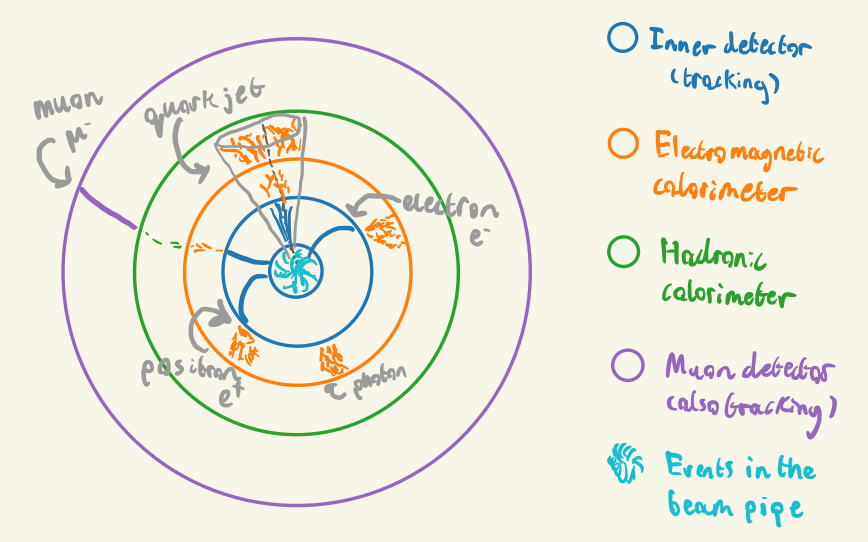 muon
μ⁻
quark jet
electron
e⁻
positron
e⁺
photon
Inner detector
(tracking)
Electromagnetic
calorimeter
Hadronic
calorimeter
Muon detector
(also tracking)
Events in the
beam pipe